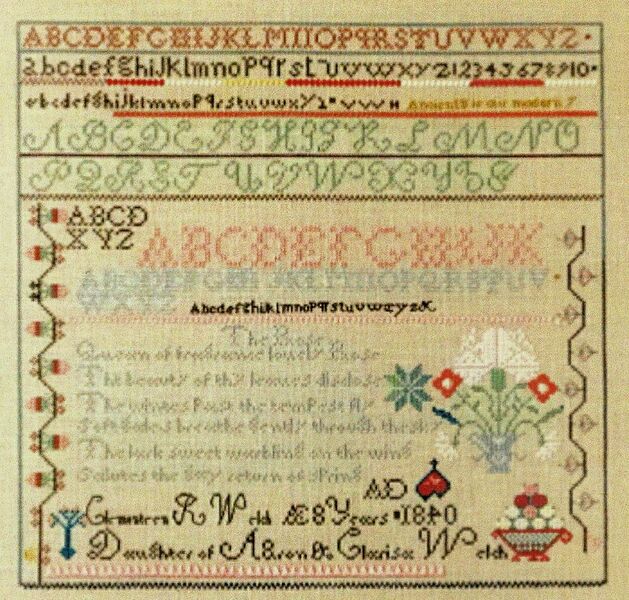 ABCDEFGHIJKLMNOPQRSTUVWXYZ.
abcdefghiJklmnoPqrstuvwxyz12345678910.
abcdefghiJklmnoPqrstuvwxyz
ABCDEFGHIJKLMNO
PQRSTUVWXYZ&
ABCD
XYZ
ABCDEFGHIJK
ABCDEFGHIJKLMNOPQRSTUV
WXYZ
AbcdefghiklmnoPqrstuvwxyz&
The
Queen of fragrance lovely Rose
The beauty of thy leaves disclose
The winters Past the tempest fly
Soft Gales breathe gently through the sky
The lark sweet warbling on the wing
Salutes the gay return of spring
AD
R Welch Æ 8 Years 1840
Daughter of Aaron & Clarisa Welch